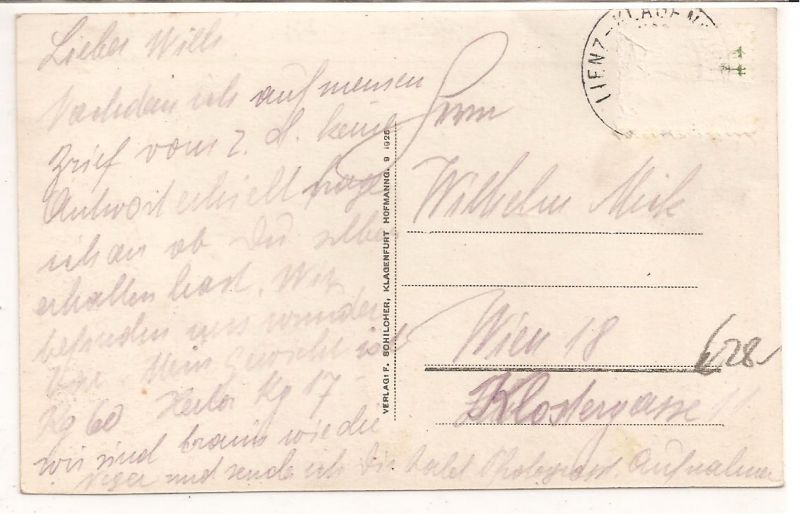 Lieber Willi
Nachdem ich auf meinen
Brief vom 2. d. keine
Antwort erhielt frage
ich an ob Du selben
erhalten hast. Wir
befinden uns wunder
bar. Mein Gewicht ist
Kg 60 Kg 17
wir sind braun wie die
Neger und sende ich Dir bald photograf. Aufnahmen
VERLAG: F. SCHILCHER, KLAGENFURT HOFMANNG. 9 1925
LIENZ-KLAGENF
Herrn
Wilhelm Mick
Wien 18
Klostergasse
628